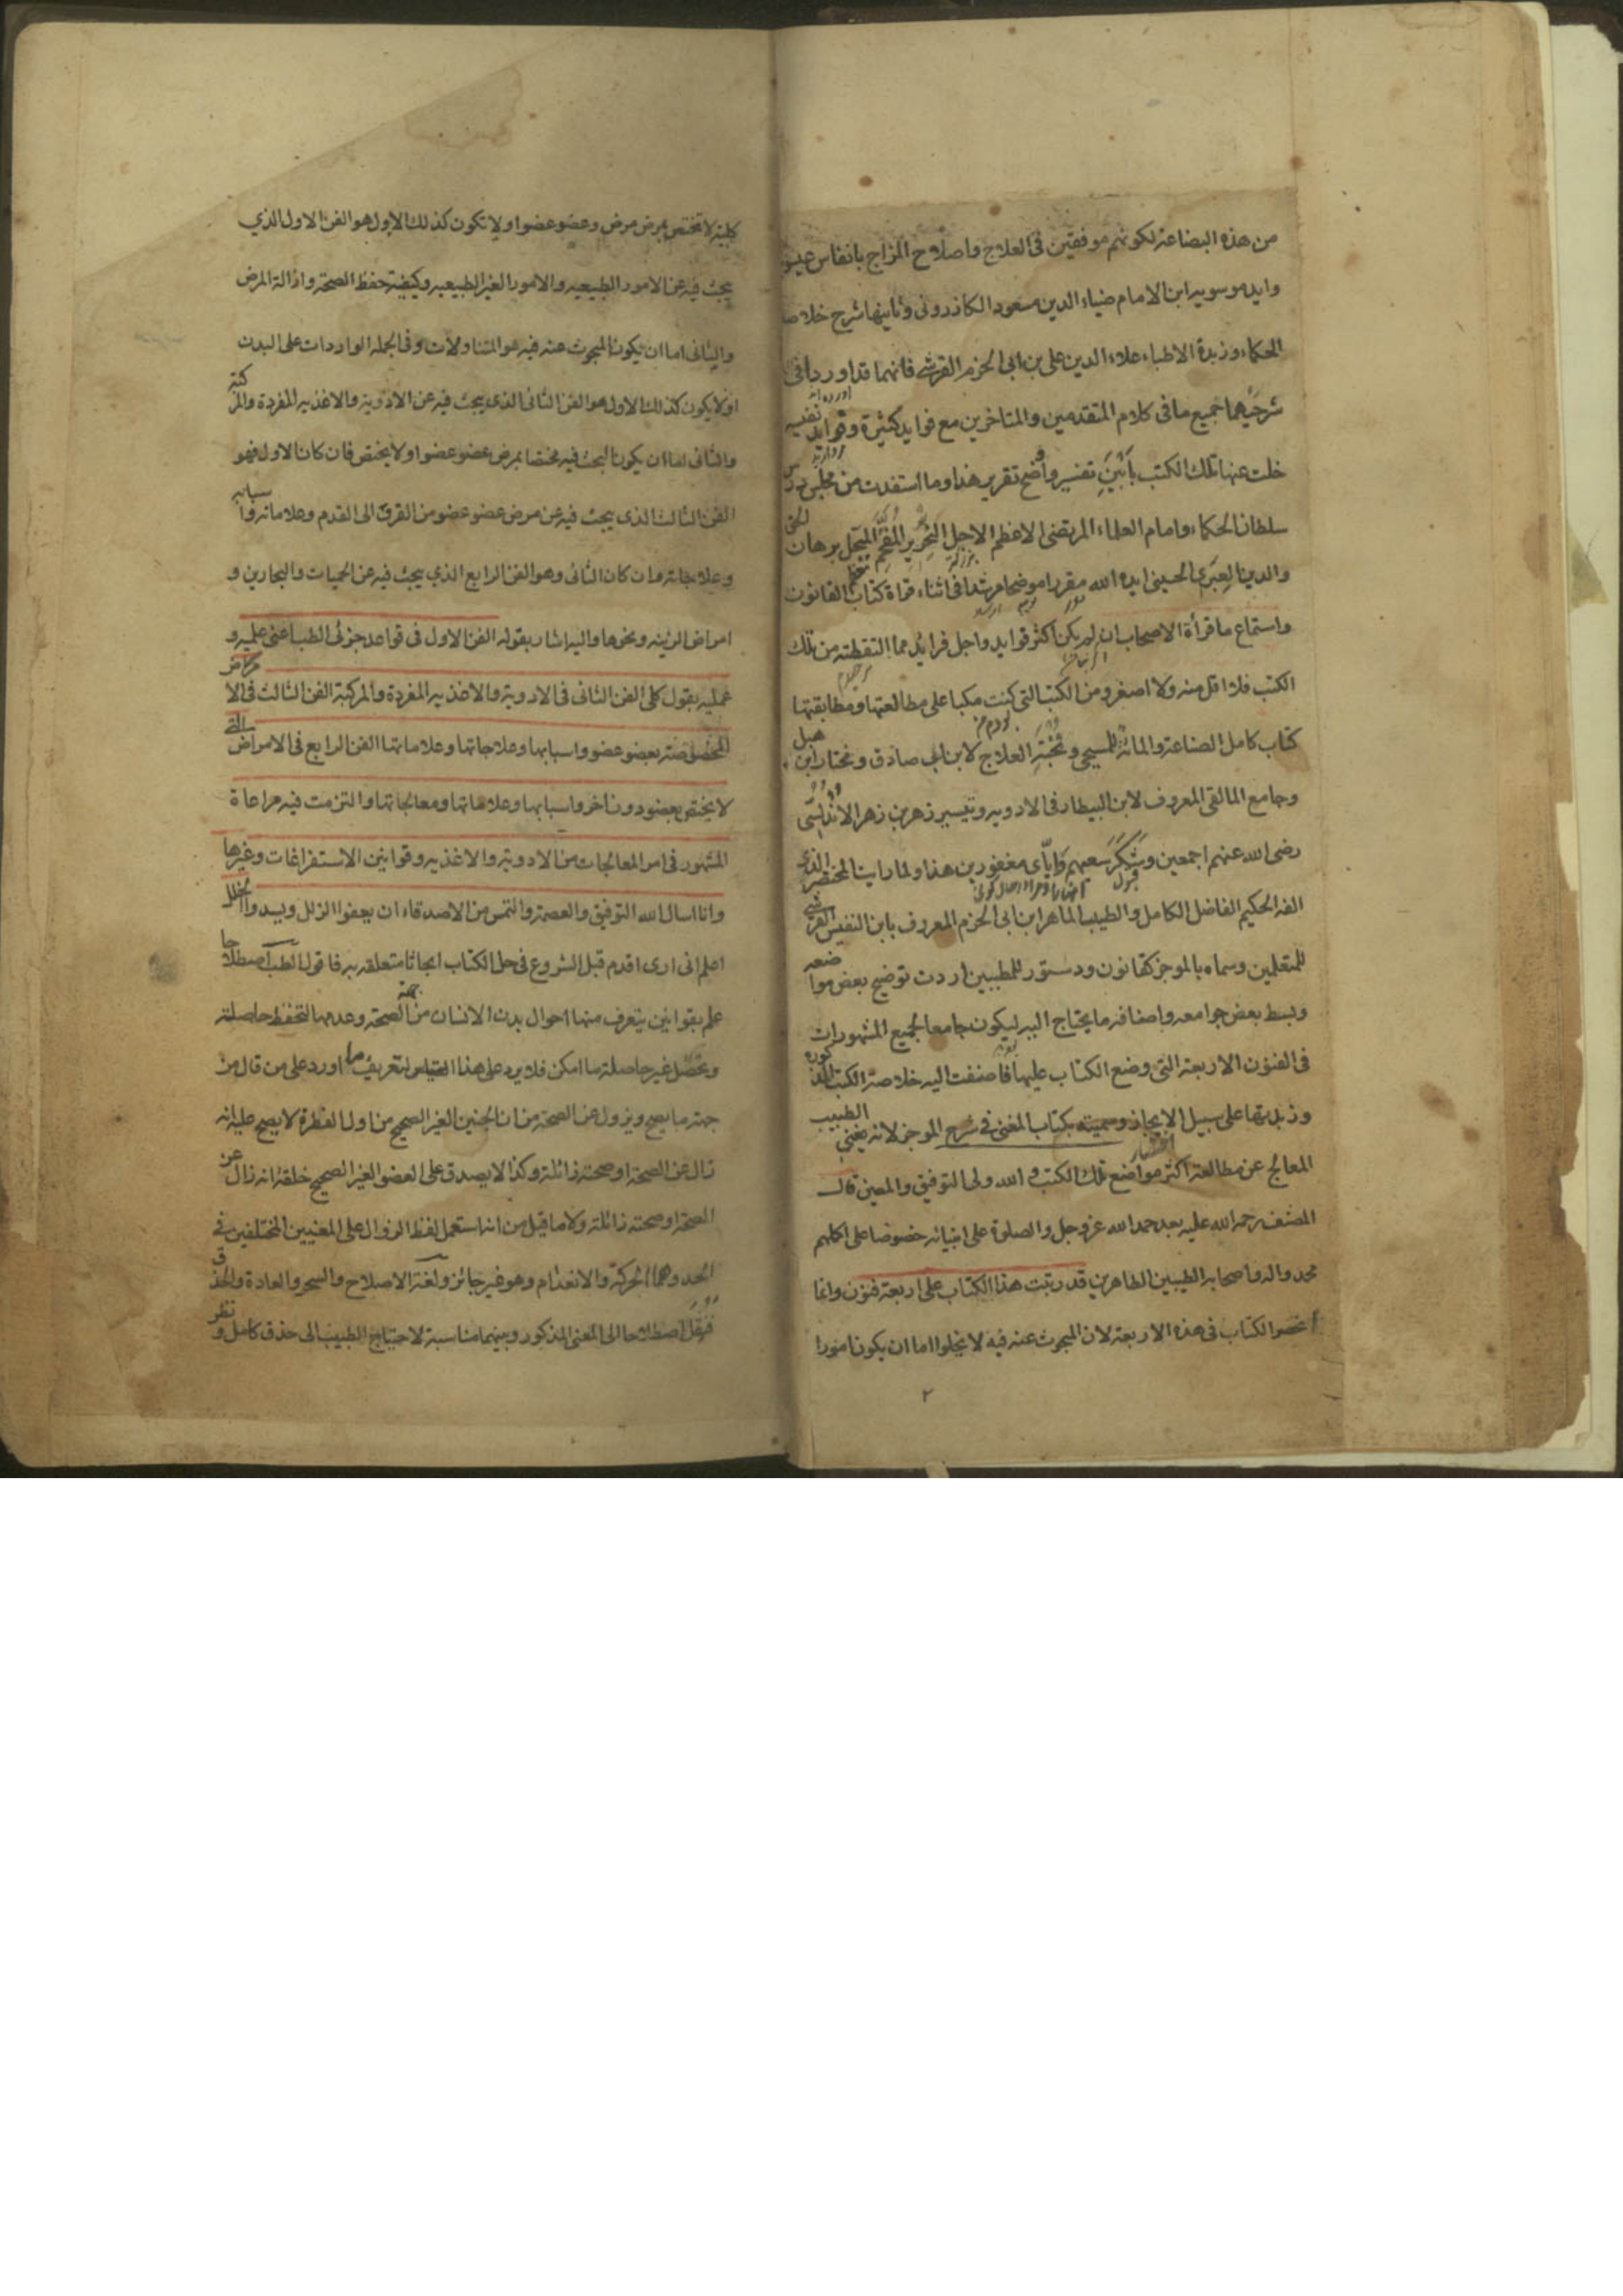 من هذه البضاعة لكونهم موفقين فى العلاج واصلاح المزاج بانفاس
وايد موسويه ابن الامام ضياء الدين مسعود الكازرونى وثانيها شرح خلاصة
الحكماء وزبدة الاطباء علاء الدين على بن ابى الحزم القرشى فانهما قد اوردا فى
شرحيهما جميع ما فى كلام المتقدمين والمتاخرين مع فوايد كثيرة وفرايد نفيسه
خلت عنها تلك الكتب بابين تفسير واوضح تقرير هذا وما استفدت من مجلس
سلطان الحكماء وامام العلماء المرتضى الاعظم الاجل النحرير المفخم المبجل برهان الحق
والدين العبرى الحسينى ايده الله مقررا موضحا مرشدا فى اثناء قراة كتاب القانون
واستماع ما قرأة الاصحاب ان لم يكن اكثر فوايد واجل فرائد مما التقطته من تلك
الكتب فلا اقل منه ولا اصغر ومن الكتب التى كنت مكبا على مطالعتها ومطابقتها
كتاب كامل الصناعة والمائة للمسيحى ونخبة العلاج لابن ابى صادق ومختار ابن هبل
وجامع المالقى المعروف لابن البيطار فى الادويه وتيسير زهر بن زهر الاندلسى
رضى الله عنهم اجمعين وشكر سعيهم واياى مغفورين هذا ولما راينا المختصر الذى
الفه الحكيم الفاضل الكامل والطبيب الماهر ابن ابى الحزم المعروف بابن النفيس القرشى
للمتعلمين وسماه بالموجز كقانون ودستور للمطببين اردت توضيح بعض مواضعه
وبسط بعض جوامعه واضافه ما يحتاج اليه ليكون جامعا لجميع المشهورات
فى الفنون الاربعة التى وضع الكتاب عليها فاضفت اليه خلاصة الكتب المذكورة
وزبدتها على سبيل الايجاز وسميته بكتاب المغنى فى شرح الموجز لانه يغنى الطبيب
المعالج عن مطالعة اكثر مواضع تلك الكتب والله ولى التوفيق والمعين قال
المصنف رحمه الله عليه بعد حمد الله عز وجل والصلوة على انبيائه خصوصا على اكملهم
محمد واله واصحابه الطيبين الطاهرين قد رتبت هذا الكتاب على اربعة فنون وانما
انحصر الكتاب فى هذه الاربعة لان المبحوث عنه فيه لا يخلوا اما ان يكون امورا
٢
كلية لا تختص بمرض مرض وعضو عضو اولا تكون كذلك الاول هو الفن الاول الذي
يبحث فيه عن الامور الطبيعيه والامور الغير الطبيعيه وكيفية حفظ الصحة وازالة المرض
والثانى اما ان يكون المبحوث عنه فيه هو المتناولات وفى الجمله الواردات على البدن
اولا يكون كذلك الاول هو الفن الثانى الذى يبحث فيه عن الادوية والاغذيه المفردة والمركبة
والثانى اما ان يكون البحث فيه مختصا بمرض عضو عضو اولا يختص فان كان الاول فهو
الفن الثالث الذى يبحث فيه عن مرض عضو عضو من القرن الى القدم وعلاماته واسبابه
وعلاجاته وان كان الثانى وهو الفن الرابع الذى يبحث فيه عن الحميات والبحارين و
امراض الزينه ونحوها واليه اشار بقوله الفن الاول فى قواعد جزئى الطب اعنى علميه و
عمليه بقول كلى الفن الثانى فى الادوية والاغذيه المفردة والمركبة الفن الثالث فى الامراض
المختصة بعضو عضو واسبابها وعلاجاتها وعلاماتها الفن الرابع فى الامراض التى
لا يختص بعضو دون اخر واسبابها وعلاماتها ومعالجاتها والتزمت فيه مراعاة
المشهور فى امر المعالجات من الادوية والاغذيه وقوانين الاستفراغات وغيرها
وانا اسال الله التوفيق والعصمة والتمس من الاصدقاء ان يعفوا الزلل ويسدوا الخلل
اعلم انى ارى اقدم قبل الشروع فى حل الكتاب ابحاثا متعلقه به فاقول الطب اصطلاحا
علم بقوانين يتعرف منها احوال بدن الانسان من جهة الصحة وعدمها لتحفظ حاصلة
وتحصل غير حاصلة ما امكن فلا يرد على هذا التعريف ما اورد على من قال من
جهة ما يصح ويزول عن الصحة من ان الجنين الغير الصحيح من اول الفطرة لا يصح عليه انه
زال عن الصحة او صحته زائلة وكذا لا يصدق على العضو الغير الصحيح خلقة انه زال عن
الصحة او صحته زائلة ولا ما قيل من انه استعمل لفظ الزوال على المعنيين المختلفين فى
الحد وهما الحركة والانعدام وهو غير جائز ولغة الاصلاح والسحر والعادة والحذق
فنقل اصطلاحا الى المعنى المذكور وبينهما مناسبة لاحتياج الطبيب الى حذق كامل ونظر